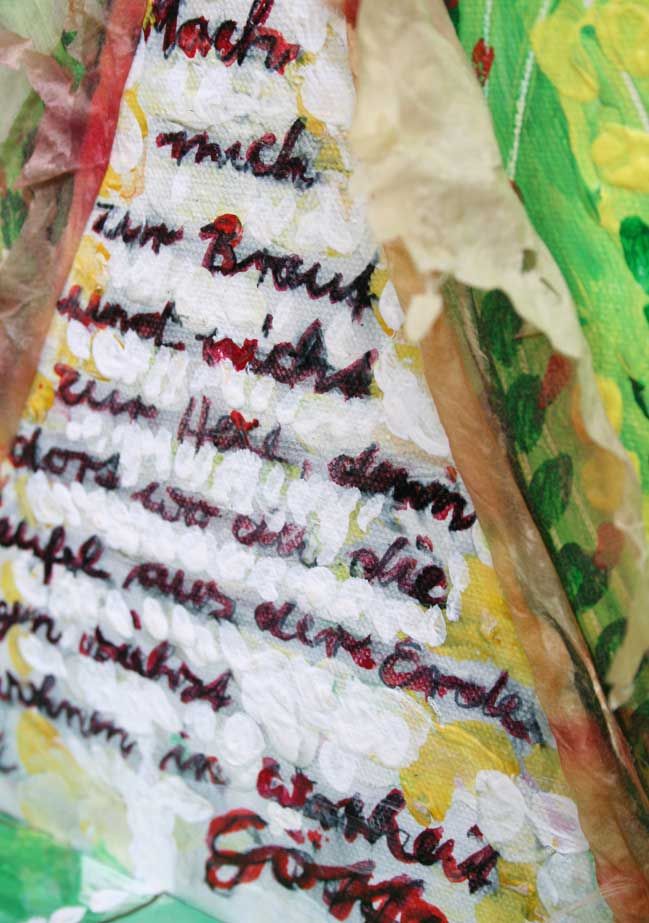 Mach
mich
zur Braut
und nicht
zur Hex, denn
dort wo du die
eufel aus der Erde
gen siehst
wohnen in wahrheit
Gott